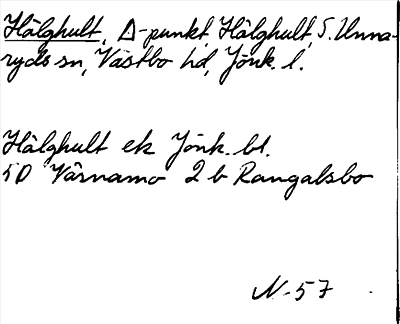 Hålghult, Δ-punkt, Hålghult, S. Unna-
ryds sn, Västbo hd, Jönk. l.
Hälghult ek Jönk. bl.
5D Värnamo 2 b Rangalsbo
N-57